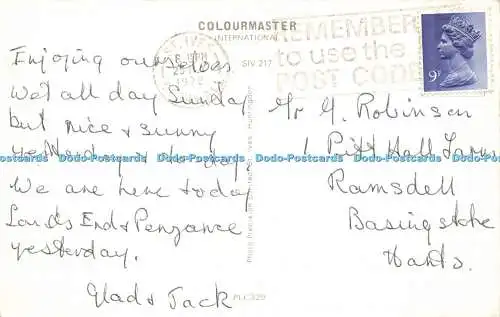 COLOURMASTER
INTERNATIONAL
SIV 217
REMEMBER
to use the
POST CODE
9P
Enjoying ourselves
Wet all day Sunday
but nice & sunny
yesterday & today
We are here today
Lands End & Penzance
yesterday.
Glad & Jack
Mr G. Robinson
1 Pitt Hall Farm
Ramsdell
Basingstoke
Hants.
PLC329
Dodo-Postcards Dodo-Postcards Dodo-Postcards Dodo-Postcards Dodo-Postcards Dodo-Postcards